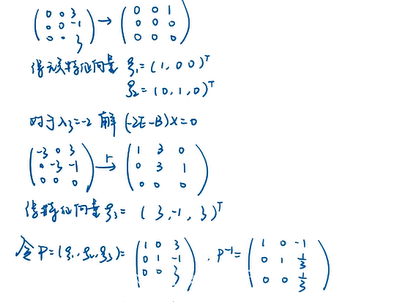 ( 0 0 3 ; 0 0 -1 ; 0 0 3 ) → ( 0 0 1 ; 0 0 0 ; 0 0 0 )
得 特征向量 ξ₁=(1,0 0)ᵀ
ξ₂=(0,1,0)ᵀ
对于λ₃=-2 解 (-2E-B)X=0
( -3 0 3 ; 0 -3 -1 ; 0 0 0 ) →r ( 1 3 0 ; 0 3 1 ; 0 0 0 )
得特征向量ξ₃= (3,-1,3)ᵀ
令P=(ξ₁,ξ₂,ξ₃)= ( 1 0 3 ; 0 1 -1 ; 0 0 3 ) . P⁻¹= ( 1 0 -1 ; 0 1 1/3 ; 0 0 1/3 )